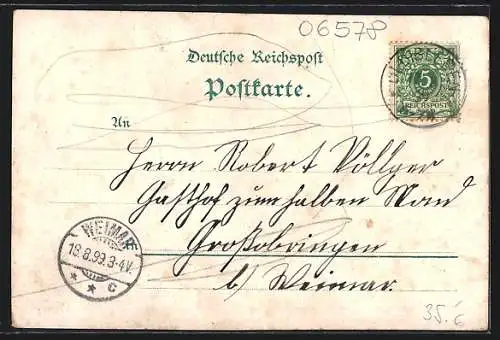 06578
Deutsche Reichspost
Postkarte.
5
REICHSPOST
An
Herrn Robert Völlger
Gasthof zum halben Mond
Großobringen
b/ Weimar.
WEIMAR
18.8.99.3-4V.
* * c
35.-6